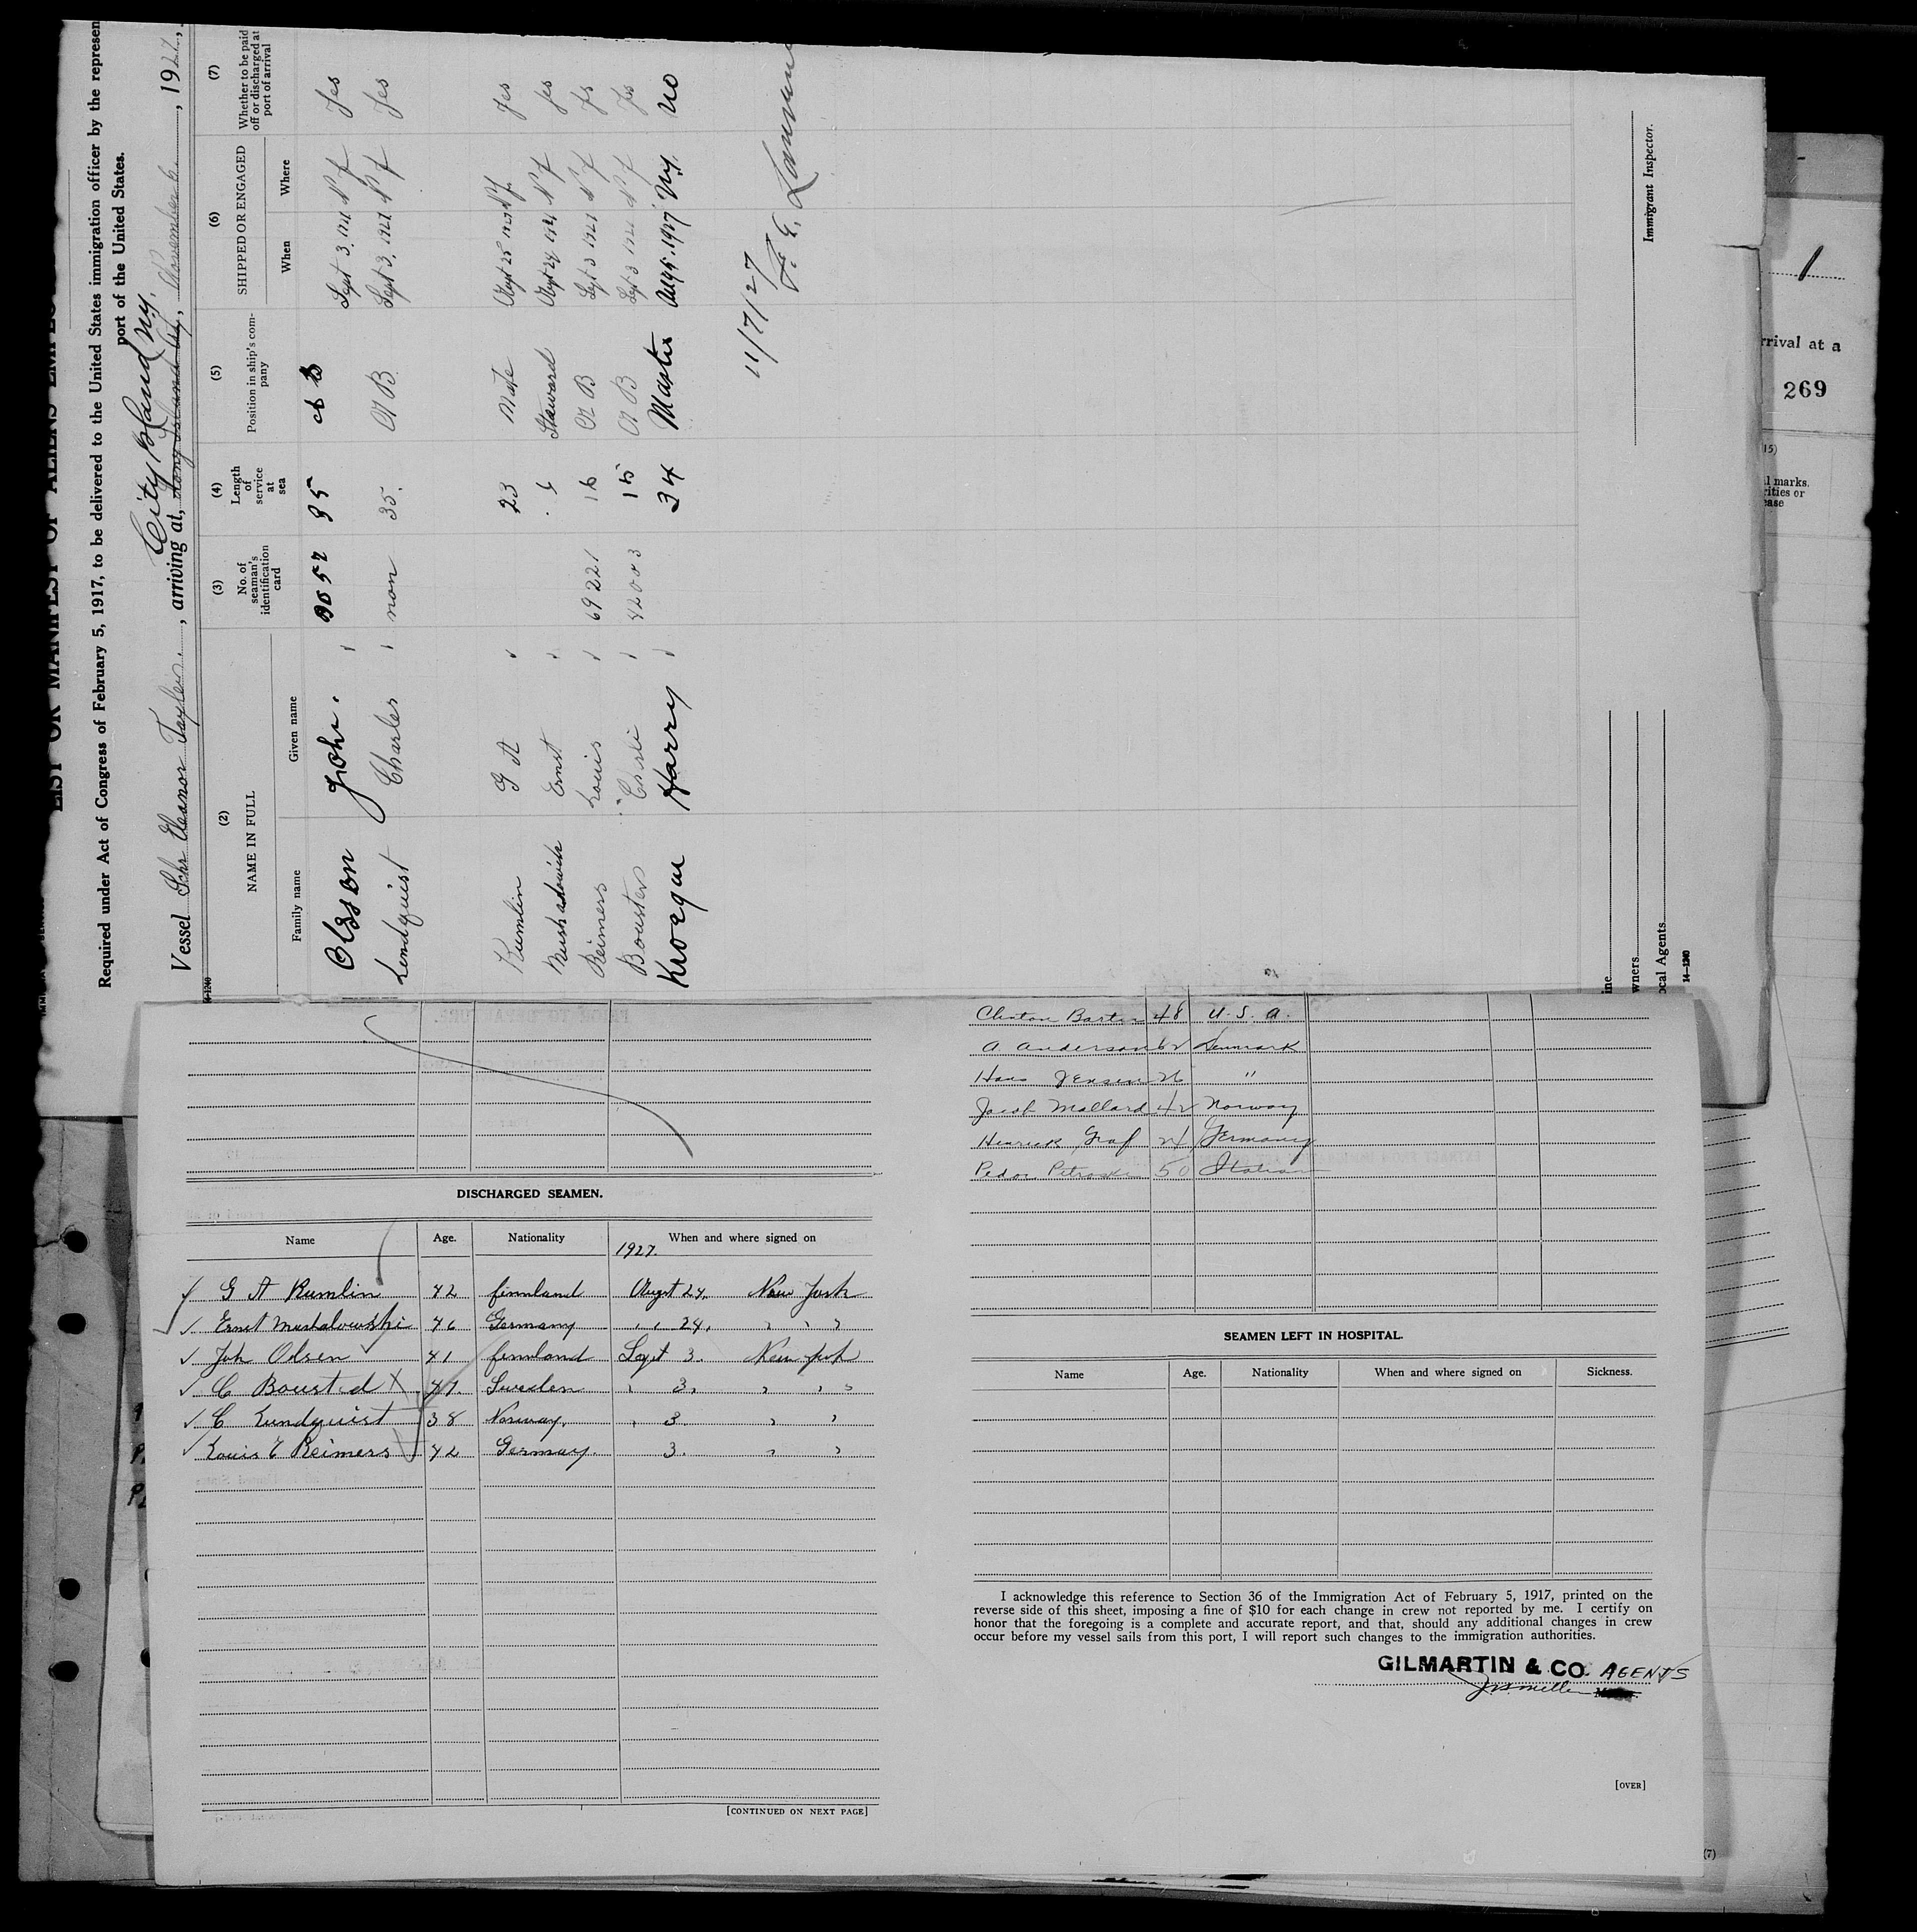 LIST OR MANIFEST OF ALIENS EMPLO
Required under Act of Congress of February 5, 1917, to be delivered to the United States immigration officer by the represen
port of the United States.
City Island NY.
Vessel Schr Eleanor Taylor, arriving at, Long Island City, November 6, 1927,
(2)
NAME IN FULL
Family name
Given name
(3)
No. of seaman's identification card
(4)
Length of service at sea
(5)
Position in ship's company
(6)
SHIPPED OR ENGAGED
When
Where
(7)
Whether to be paid off or discharged at port of arrival
Olsson John. 35 A B Sept 3. 1927 N Y Yes
Lendquist Charles non 35. A B Sept 3. 1927 N Y Yes
Rumlin G A 23 Mate Augt 25 1927 N Y. Yes
Ernst Steward Augt 24 1927 N Y Yes
Reimers Louis 69221 16 A B Sept 3 1927 N Y Yes
Bousters 42003 15 A B Sept 3 1927 N Y Yes
Harry 34 Master Aug 5. 1927 NY. NO
11/7/27
Immigrant Inspector.
ine
wners
ocal Agents
14—1240
1
rrival at a
269
15)
l marks,
rities or
ease
DISCHARGED SEAMEN.
Name Age. Nationality When and where signed on
1927.
G A Rumlin 42 finnland Augt 24. New York
Ernst Mushalowski 46 Germany " 24. " "
Joh Olsen 41 finnland Sept 3. New York
C Boust d X 47. Sweden " 3. " "
C Lundquist 38 Norway. " 3 " "
Louis E Reimers 42 Germay. 3. " "
[CONTINUED ON NEXT PAGE]
Clinton Barter 48 U. S. A.
A Anderson 62 Denmark
Hans Jensen 26 "
Jacob Mollard 42 Norway
Henrick Graf 24 Germany
50 Italian
SEAMEN LEFT IN HOSPITAL.
Name Age. Nationality When and where signed on Sickness.
I acknowledge this reference to Section 36 of the Immigration Act of February 5, 1917, printed on the
reverse side of this sheet, imposing a fine of $10 for each change in crew not reported by me. I certify on
honor that the foregoing is a complete and accurate report, and that, should any additional changes in crew
occur before my vessel sails from this port, I will report such changes to the immigration authorities.
GILMARTIN & CO. AGENTS
[OVER]
(7)